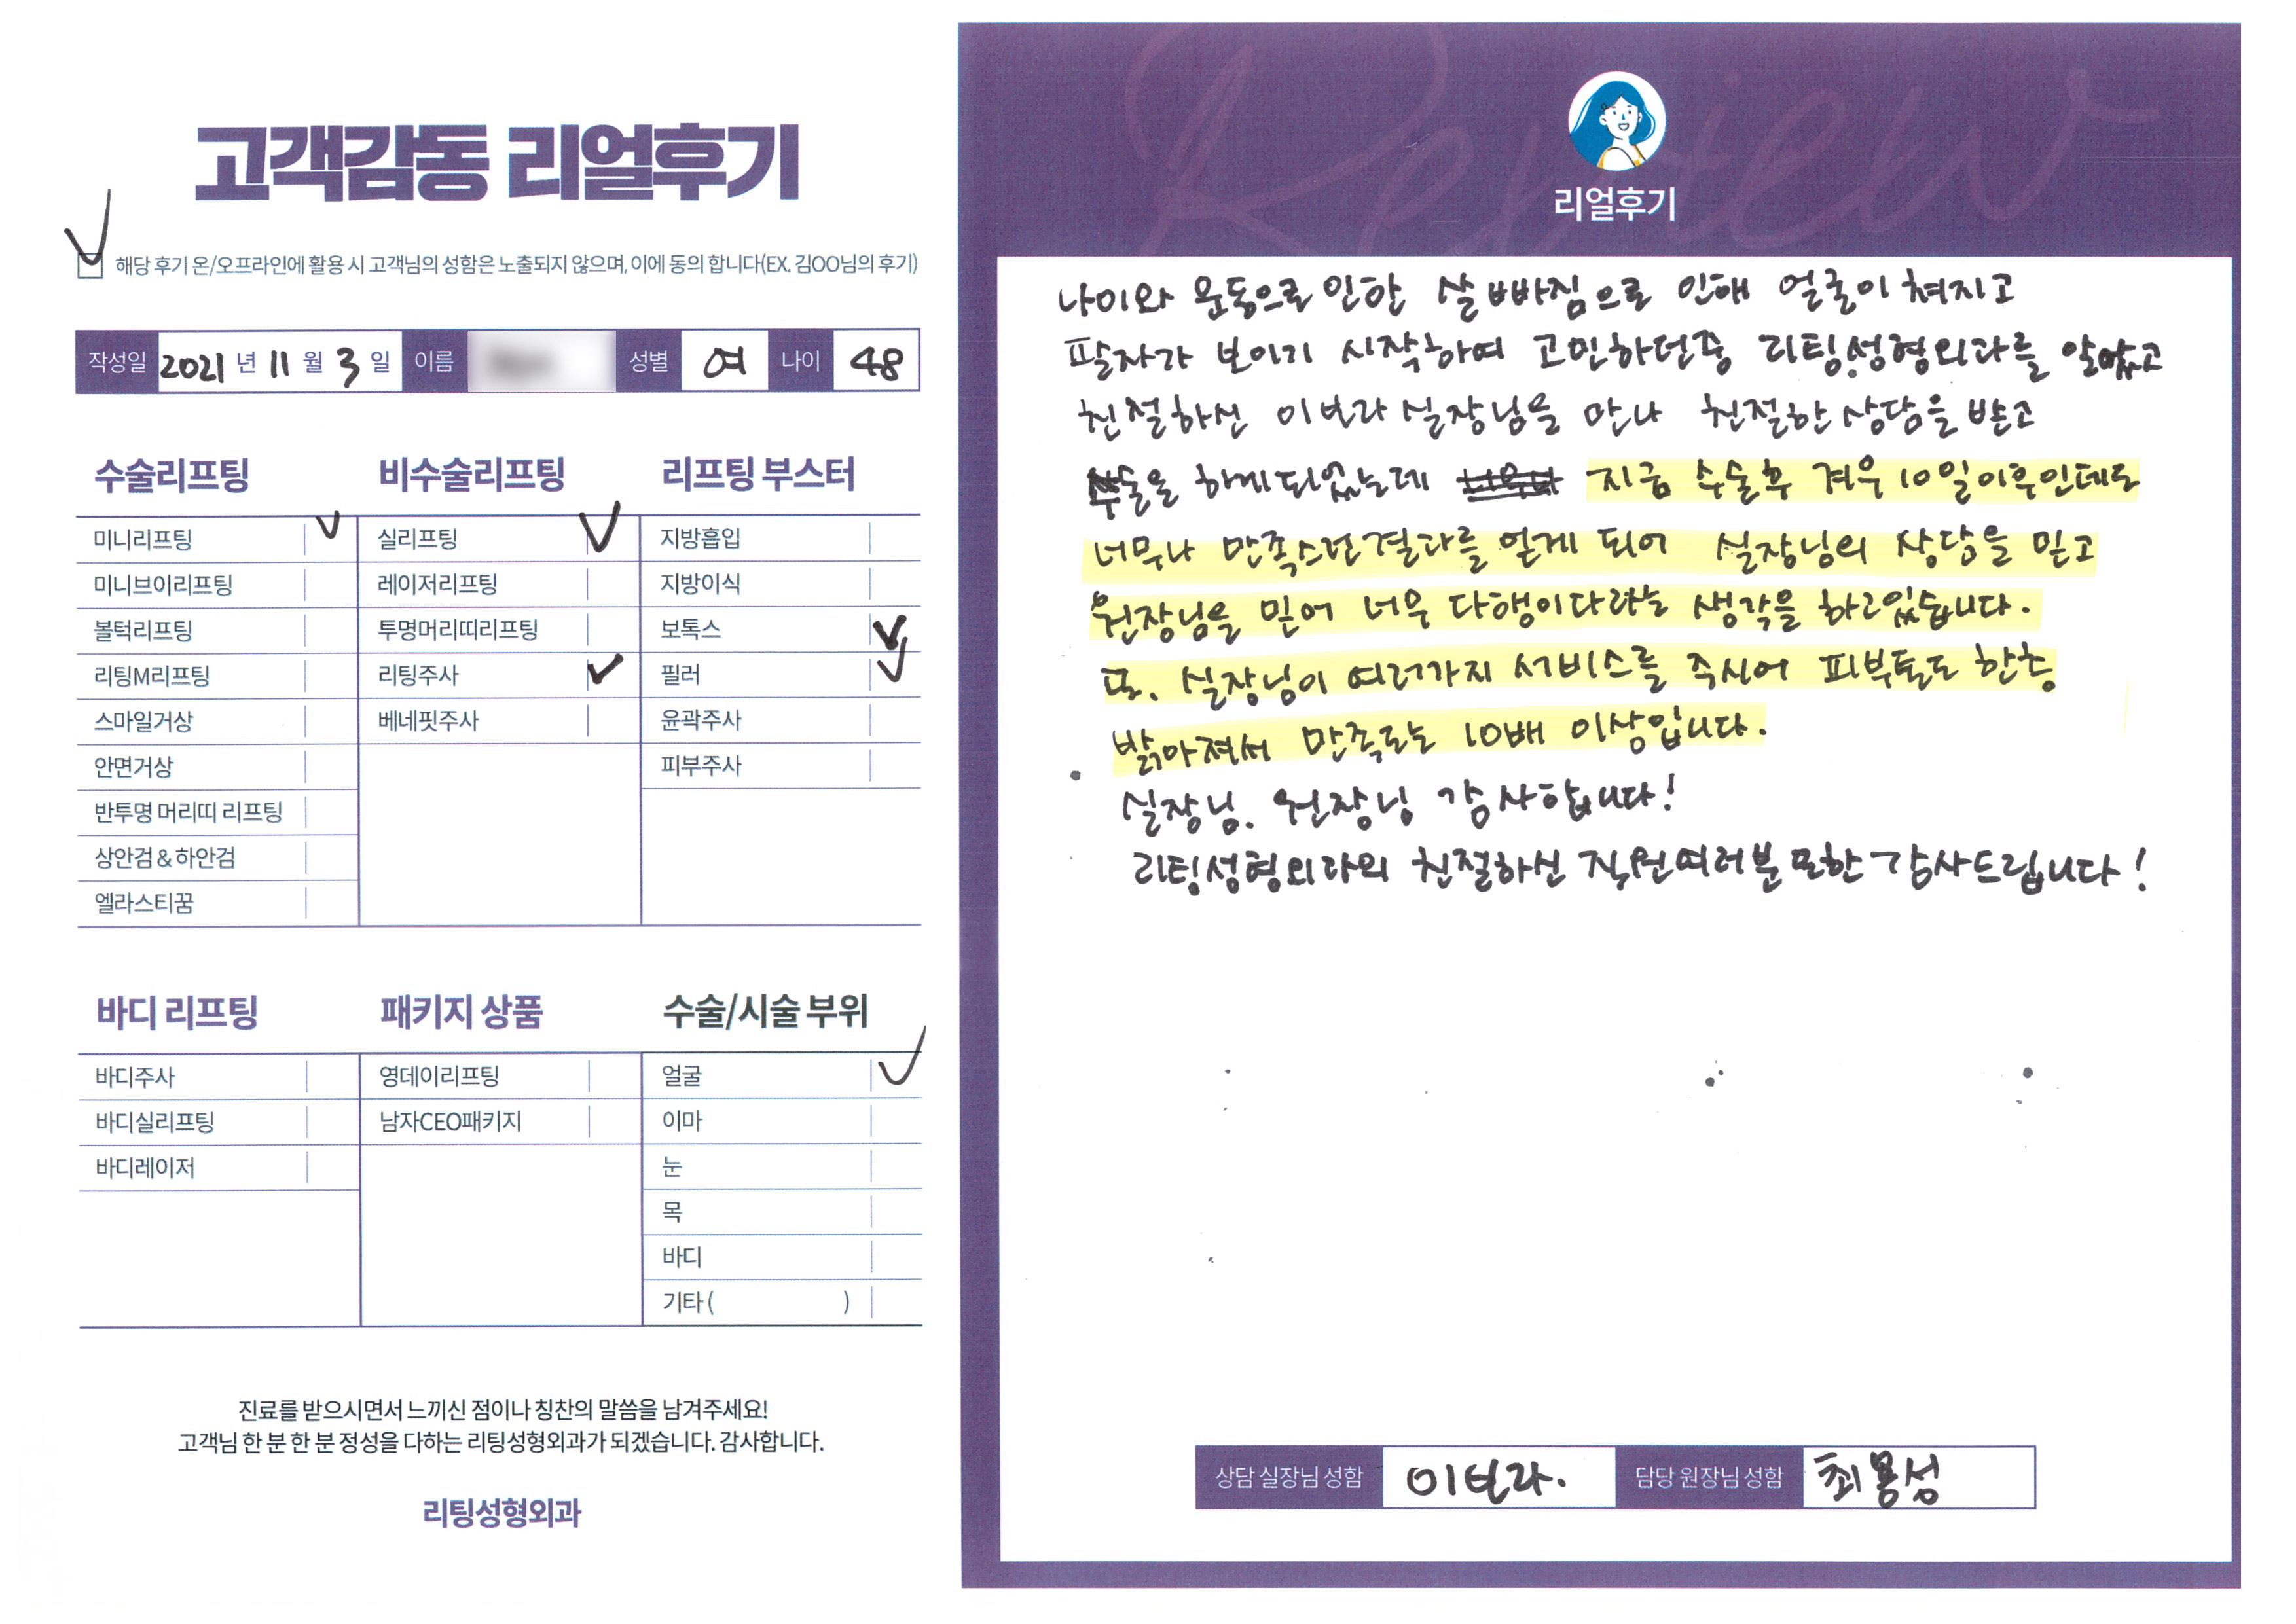 고객감동 리얼후기
해당 후기 온/오프라인에 활용 시 고객님의 성함은 노출되지 않으며, 이에 동의 합니다(EX. 김OO님의 후기)
작성일 2021 년 11 월 3 일 이름 성별 여 나이 48
수술리프팅
미니리프팅
미니브이리프팅
볼턱리프팅
리팅M리프팅
스마일거상
안면거상
반투명 머리띠 리프팅
상안검 & 하안검
엘라스티꿈
비수술리프팅
실리프팅
레이저리프팅
투명머리띠리프팅
리팅주사
베네핏주사
리프팅 부스터
지방흡입
지방이식
보톡스
필러
윤곽주사
피부주사
바디 리프팅
바디주사
바디실리프팅
바디레이저
패키지 상품
영데이리프팅
남자CEO패키지
수술/시술 부위
얼굴
이마
눈
목
바디
기타 ( )
진료를 받으시면서 느끼신 점이나 칭찬의 말씀을 남겨주세요!
고객님 한 분 한 분 정성을 다하는 리팅성형외과가 되겠습니다. 감사합니다.
리팅성형외과
Review
리얼후기
나이와 운동으로 인한 살빠짐으로 인해 얼굴이 쳐지고
팔자가 보이기 시작하여 고민하던중 리팅성형외과를 알았고
친절하신 이보라 실장님을 만나 친절한 상담을 받고
수술을 하게되었는데 지금 수술후 겨우 10일이후인데도
너무나 만족스런결과를 얻게 되어 실장님의 상담을 믿고
원장님을 믿어 너무 다행이다라는 생각을 하고있습니다.
또. 실장님이 여러가지 서비스를 주시어 피부톤도 한층
밝아져서 만족도는 10배 이상입니다.
실장님. 원장님 감사합니다!
리팅성형외과의 친절하신 직원여러분 또한 감사드립니다!
상담 실장님 성함 이보라. 담당 원장님 성함 최용성